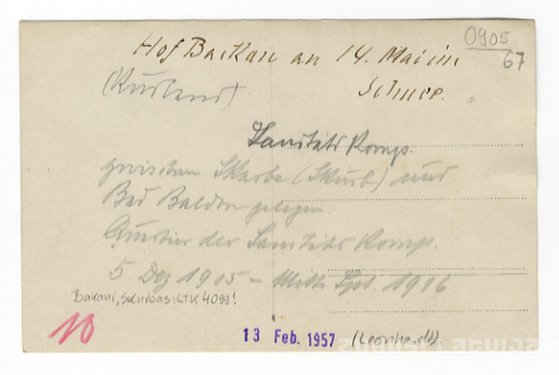 Hof Barkan an 14. Mai im
Schnee.
0905
67
(Kurland).
Sanitäts Komp.
zwischen Skarbe (Skurb) und
Bad Baldon gelegen.
Quartier der Sanitäts Komp.
5 Dez 1915 - Mitte Spt. 1916
Bakani, Skurbas: LTK 4099!
10
13 Feb. 1957
(Leonhardt)